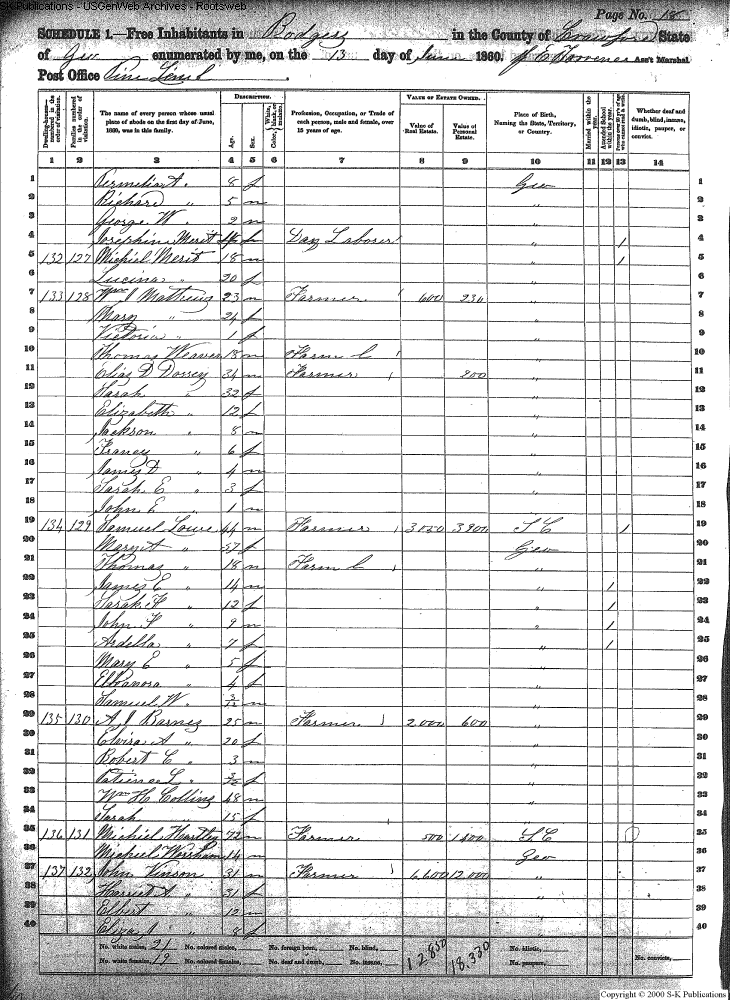 SK Publications - USGenWeb Archives - Rootsweb
Page No. 18
SCHEDULE 1.—Free Inhabitants in in the County of Crawford State
of Geo enumerated by me, on the 13 day of June 1860. Ass't Marshal
Post Office
Dwelling-house—numbered in the order of visitation.
Families numbered in the order of visitation.
The name of every person whose usual place of abode on the first day of June, 1860, was in this family.
DESCRIPTION.
Age.
Sex.
Color, White, black, or mulatto.
Profession, Occupation, or Trade of each person, male and female, over 15 years of age.
VALUE OF ESTATE OWNED.
Value of Real Estate.
Value of Personal Estate.
Place of Birth, Naming the State, Territory, or Country.
Married within the year.
Attended School within the year.
Persons over 20 y'rs of age who cannot read & write.
Whether deaf and dumb, blind, insane, idiotic, pauper, or convict.
1 2 3 4 5 6 7 8 9 10 11 12 13 14
1 A. 8 f Geo 1
2 Richard " 5 m " 2
3 George W. " 2 m " 3
4 Josephine Merit f Day Laborer " / 4
5 132 127 Michiel Merit 18 m " / 5
6 Lucina " 20 f " 6
7 133 128 Wm J Mathews 23 m Farmer 600 230 " 7
8 Mary " 24 f " 8
9 Victoria " 1 f " 9
10 Thomas Weaver 18 m Farm L " 10
11 Elias D Dorsey 34 m Farmer 200 " 11
12 Sarah " 32 f " 12
13 Elizabeth " 12 f " 13
14 Jackson " 8 m " 14
15 Francy " 6 f " 15
16 James D " 4 m " 16
17 Sarah E " 3 f " 17
18 John E " 1 m " 18
19 134 129 Samuel Lowe 44 m Farmer 3050 3900 S C / 19
20 Mary A " 37 f Geo 20
21 Thomas " 18 m Farm L " 21
22 James E " 14 m " / 22
23 Sarah F " 12 f " / 23
24 John F " 9 m " / 24
25 Ardella " 7 f " / 25
26 Mary E " 5 f " 26
27 Ellanora " 4 f " 27
28 Samuel W. " 3/12 m " 28
29 135 130 A J Barnes 25 m Farmer 2000 600 " 29
30 Elvira A " 20 f " 30
31 Robert C " 3 m " 31
32 Patience L " f " 32
33 Wm H Collins 48 m " 33
34 Sarah " 15 f " 34
35 136 131 Michiel Hartley 72 m Farmer 500 1400 S C 35
36 Michiel Worsham 14 m Geo 36
37 137 132 John Vinson 31 m Farmer 6600 12,000 " 37
38 Harriet A " 31 f " 38
39 Elbert " 12 m " 39
40 Eliza A " 8 f " 40
No. white males, 21 No. colored males, No. foreign born, No. blind, 12850 18,330 No. idiotic,
No. white females, 19 No. colored females, No. deaf and dumb, No. insane, No. paupers, No. convicts,
Copyright © 2000 S-K Publications